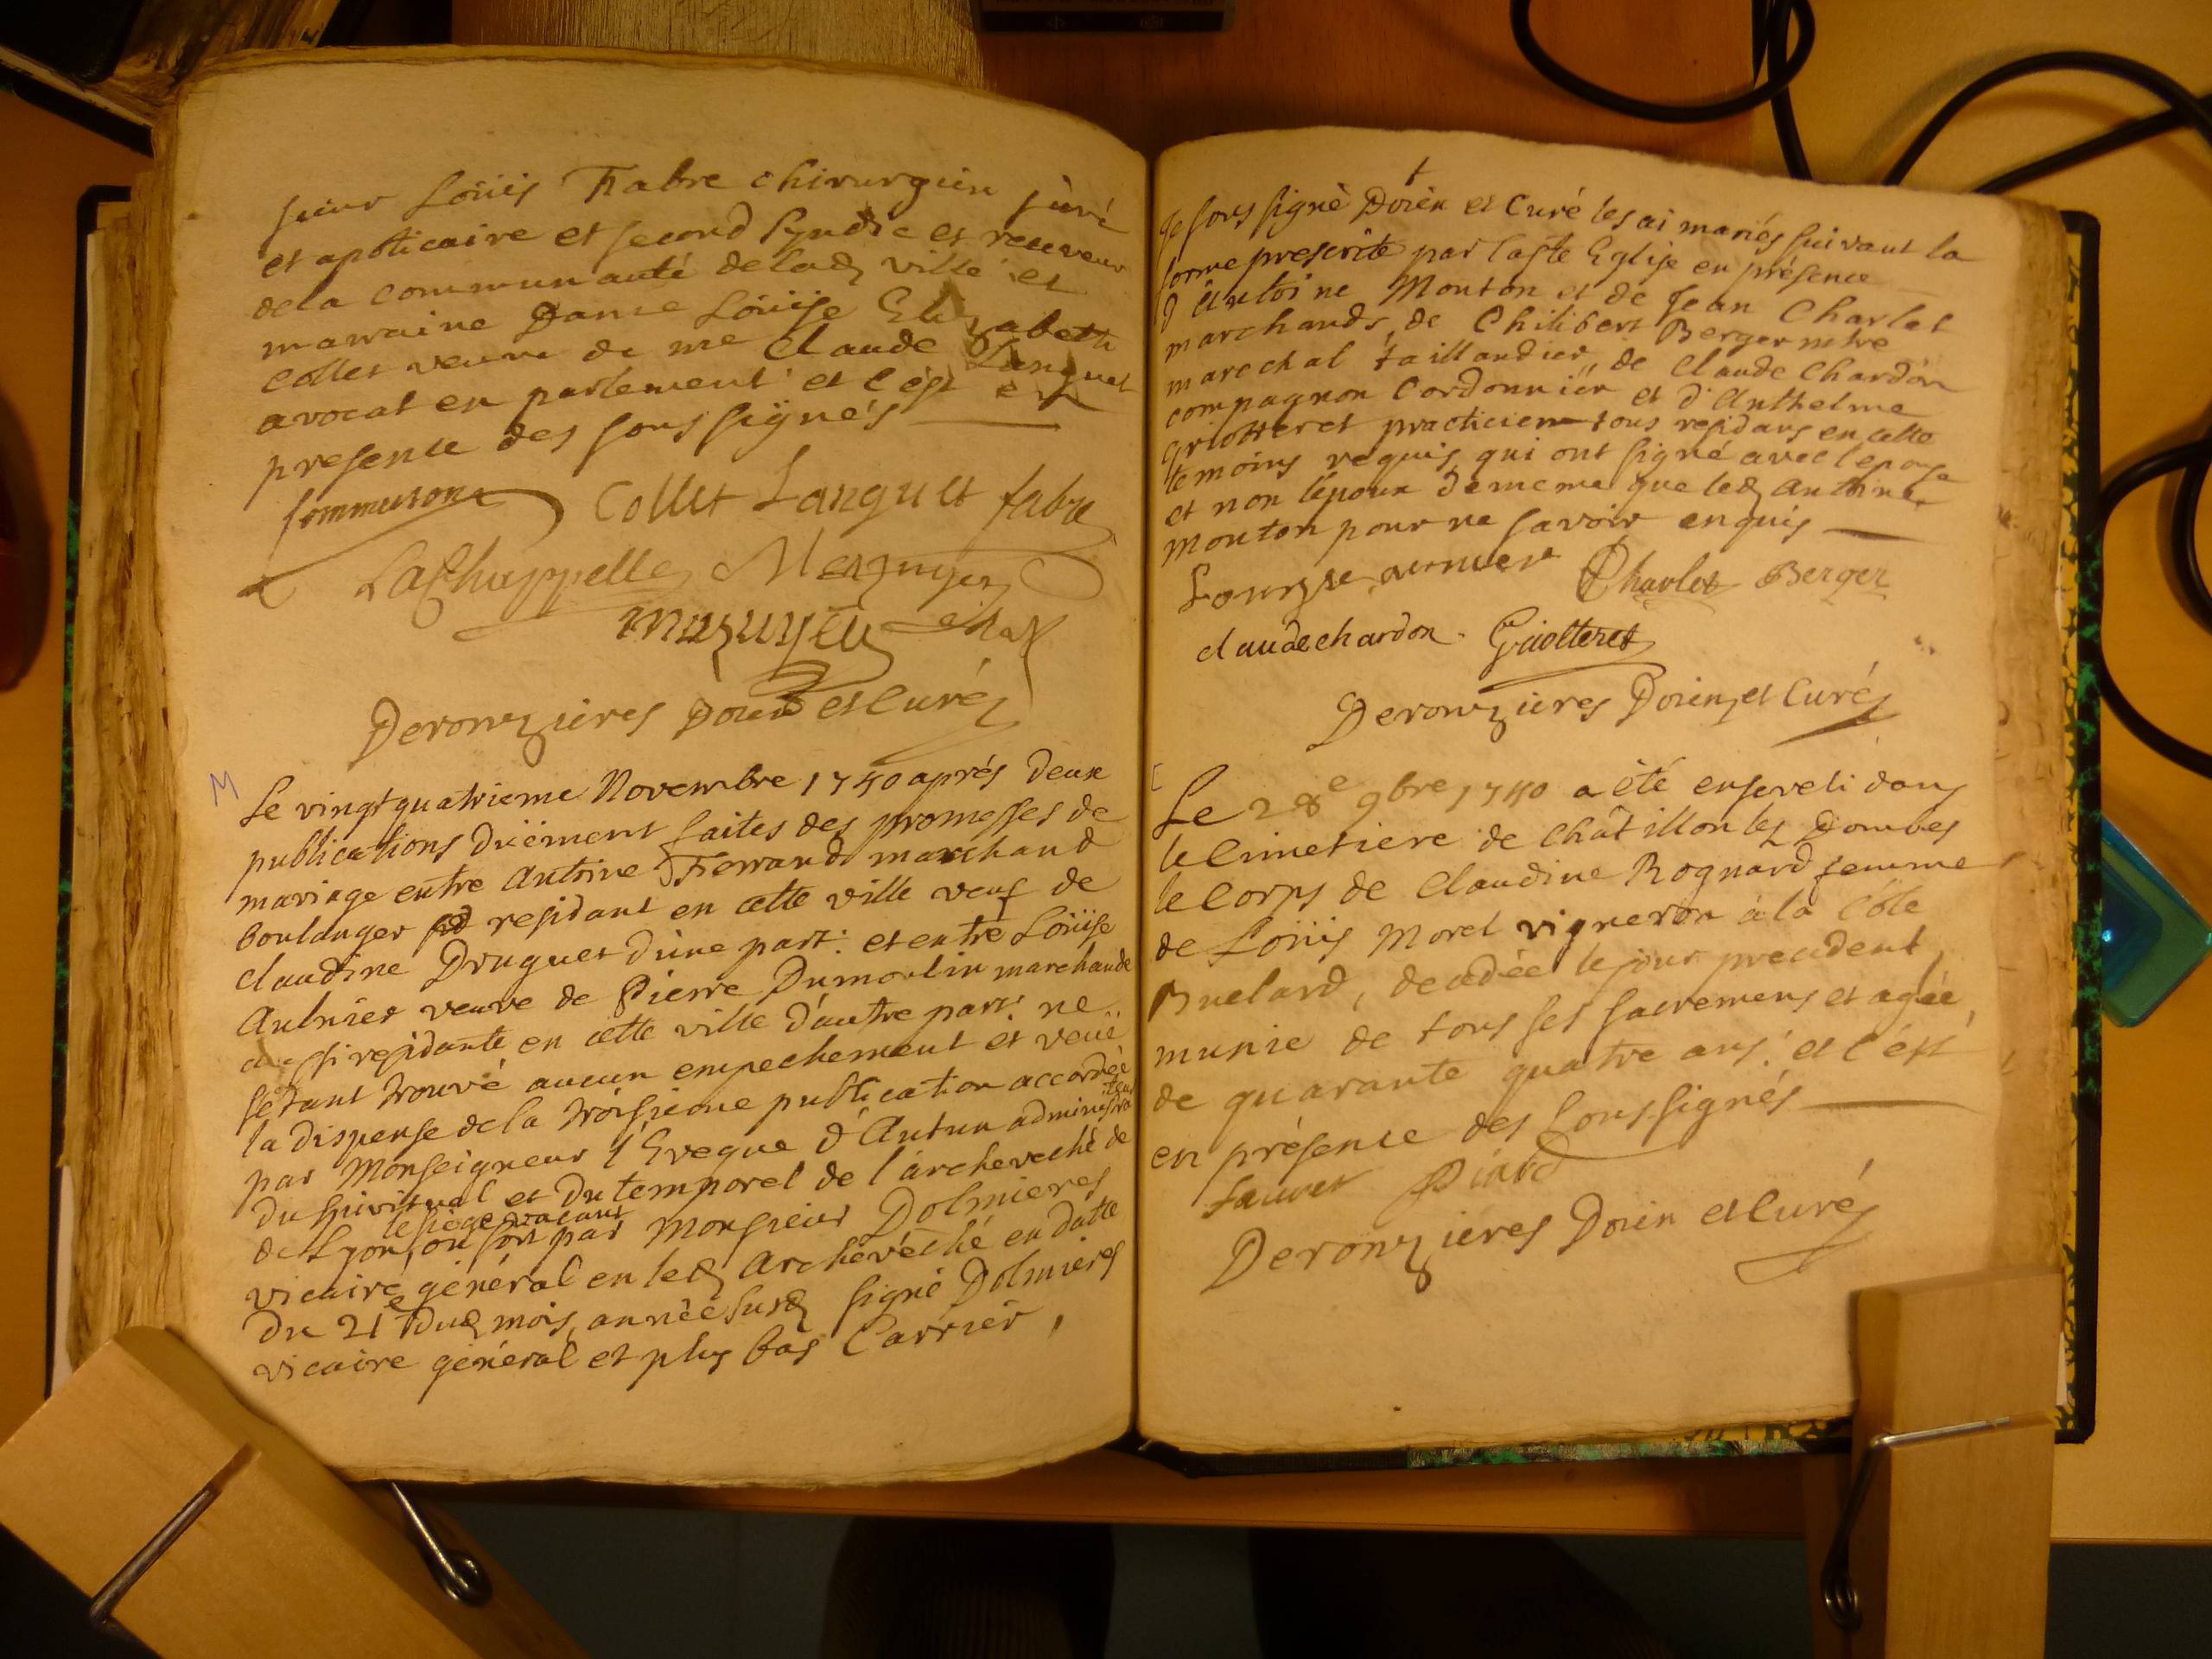 sieur Loüis Fabre chirurgien juré
et apoticaire et second Syndic et receveur
de la communauté de lad. ville et
marraine Dame Loüise Elizabeth
Collet veuve de me Claude Languet
avocat en parlement et c'ést en
presence des sous signés
Sommeson Collet Languet fabre
LaChappelle Mezuyer
mezuyer
Deronzieres Doien et Curé
M
Le vingt quatrieme Novembre 1740 aprés deux
publications düement faites des promesses de
mariage entre Antoine Ferrand marchand
boulanger residant en cette ville veuf de
claudine Druguet d'une part: et entre Loüise
Aulnier veuve de Pierre Dumoulin marchande
aussi residante en cette ville d'autre part: ne
s'étant trouvé aucun empechement et veüe
la dispense de la troisieme publication accordée
par Monseigneur l'Eveque d'Autun administrateur
du spirituel et du temporel de l'archeveché de
le siege vacant
de Lyon, ou soit par Monsieur Dolmieres
vicaire général en led. Archevéché en datte
du 21e dud. mois, année susd. signé Dolmieres
vicaire général et plus bas Carrier,
Je sous signé Doien et Curé les ai mariés suivant la
forme prescrite par la ste Eglise en présence
d'Antoine Mouton et de Jean Charlet
marchands, de Philibert Berger mtre
marechal taillandier, de Claude Chardon
compagnon Cordonnier et d'Anthelme
Griotteret practicien tous residans en cette
temoins requis qui ont signé avec l'epouse
et non l'époux de meme que led. Antoine
Mouton pour ne savoir enquis
Louisse aunier Charlet Berger
claude chardon. Griolteret
Deronzieres Doien et Curé
Le 28e 9bre 1740 a été enseveli dans
le Cimetiere de Châtillon les Dombes
le Corps de Claudine Rognard femme
de Loüis Morel vigneron à la Côte
Buelard, decedée le jour precedent,
munie de tous ses sacremens et agée,
de quarante quatre ans: et c'ést
en présence des Soussignés
fauvet Piard
Deronzieres Doien et Curé